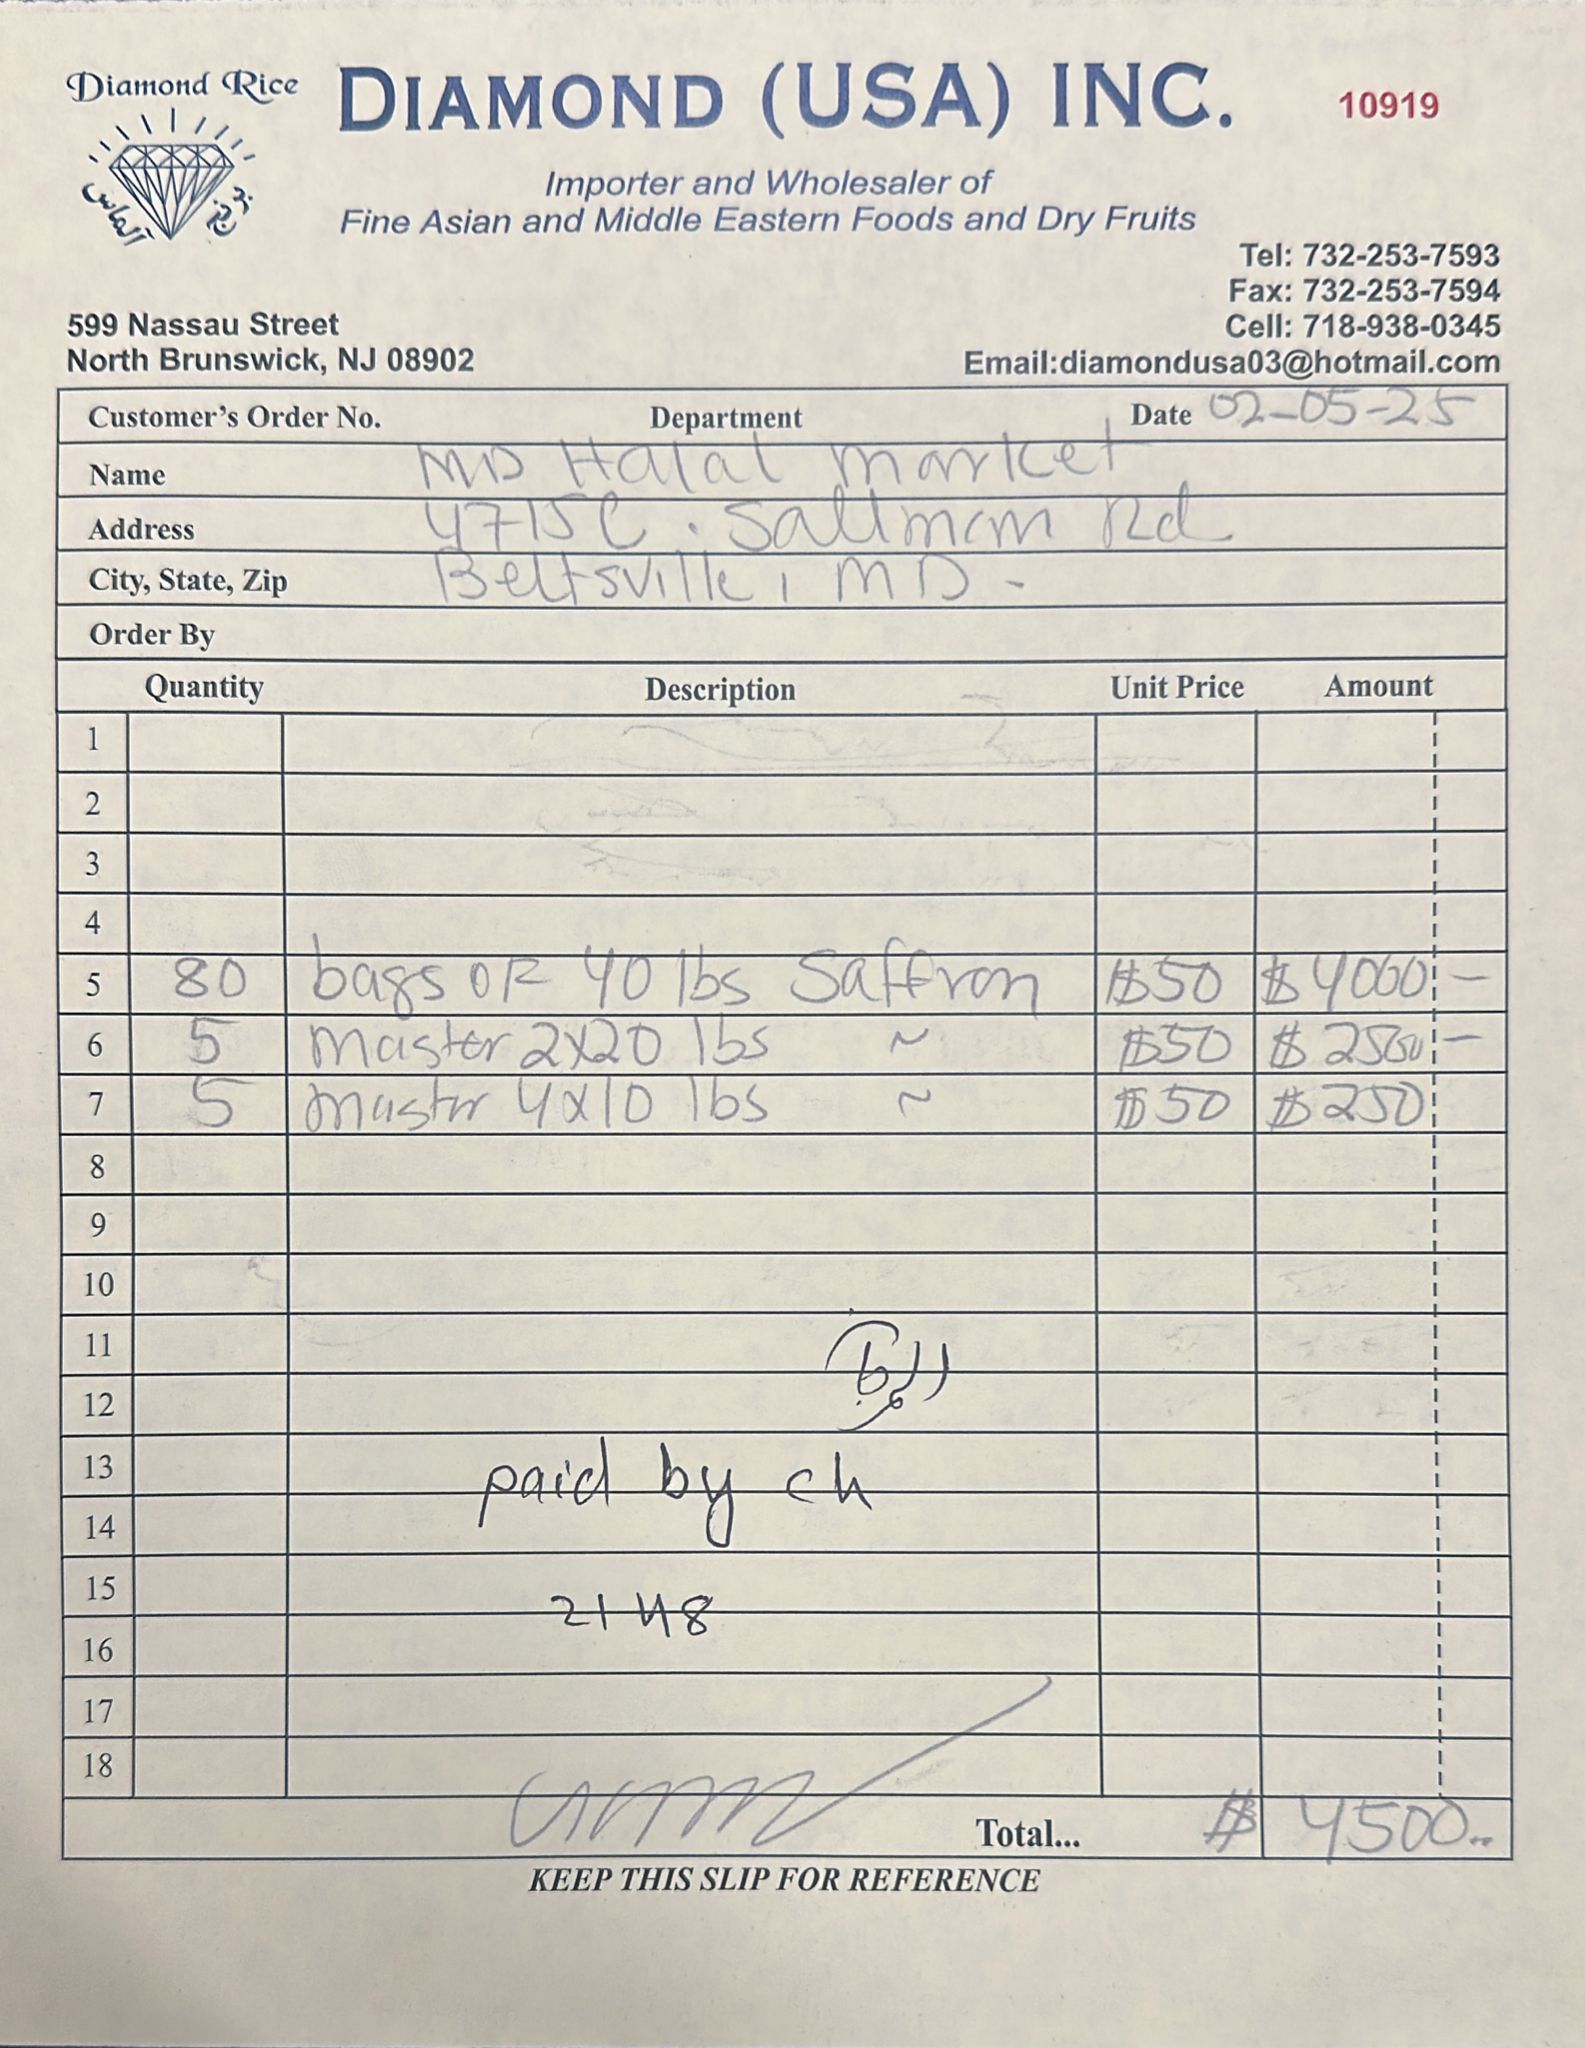 Diamond Rice
DIAMOND (USA) INC.
10919
Importer and Wholesaler of
Fine Asian and Middle Eastern Foods and Dry Fruits
الماس
Tel: 732-253-7593
Fax: 732-253-7594
Cell: 718-938-0345
Email:diamondusa03@hotmail.com
599 Nassau Street
North Brunswick, NJ 08902
Customer's Order No. Department Date 02-05-25
Name MD Halal market
Address 4715C. Sallman Rd
City, State, Zip Beltsville, MD -
Order By
Quantity Description Unit Price Amount
1
2
3
4
5 80 bags OF 40 lbs Saffron $50 $4000 -
6 5 master 2x20 lbs ~ $50 $ -
7 5 master 4x10 lbs ~ $50 $250
8
9
10
11
12
13 paid by ch
14
15
2148
16
17
18
Total... $ 4500..
KEEP THIS SLIP FOR REFERENCE